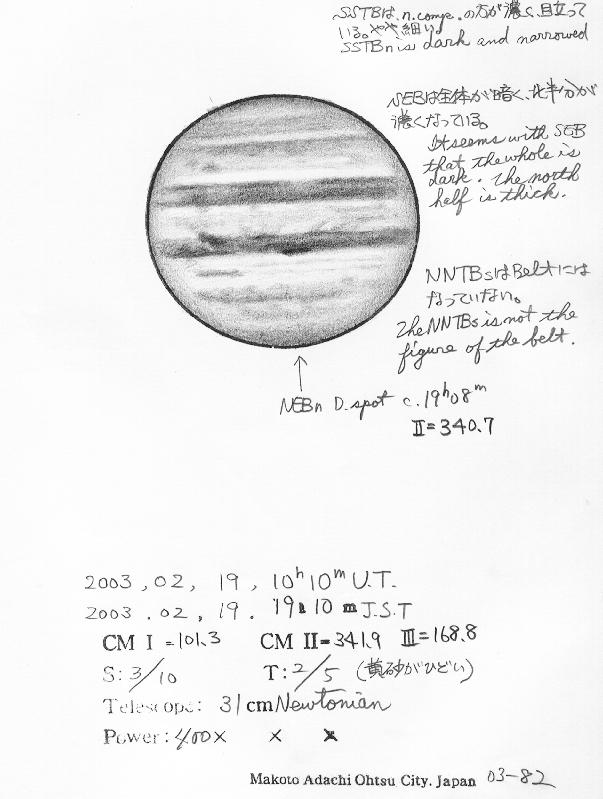 SSTBは、n.comp.の方が濃く、目立って
いる。やや細い。
SSTBn is dark and narrowed
SEBは全体が暗く、北半分が
濃くなっている。
It seems with SEB
that the whole is
dark. The north
half is thick.
NNTBsはBeltには
なっていない。
The NNTBs is not the
figure of the belt.
NEBn D. spot c. 19h08m
II=340.7
2003, 02, 19, 10h10m U.T.
2003. 02, 19. 19h10m J.S.T
CM I=101.3 CM II=341.9 III=168.8
S: 3/10 T: 2/5 (黄砂がひどい)
Telescope: 31cm Newtonian
Power: 400× × ×
Makoto Adachi Ohtsu City. Japan 03-82